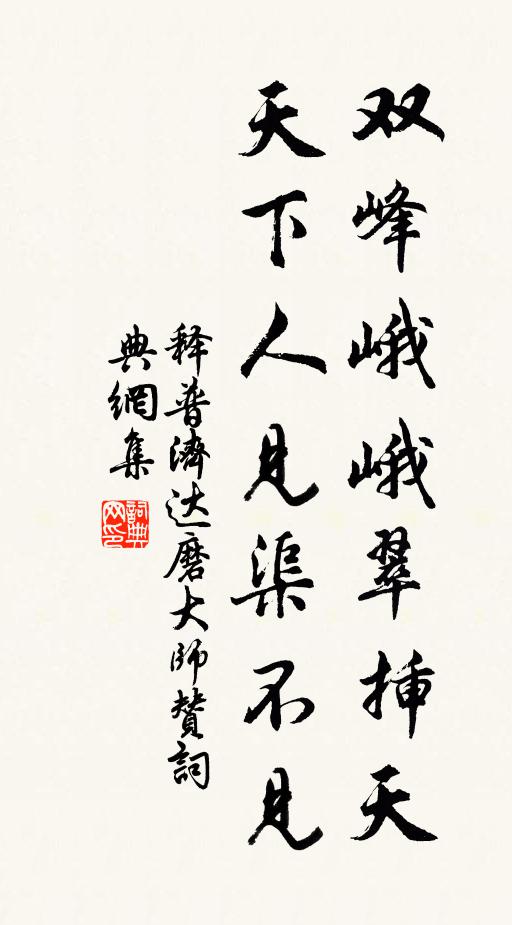 双峰峨峨翠插天
天下人见渠不见
释普濟达磨大师賛詞
典網集
詞典网印